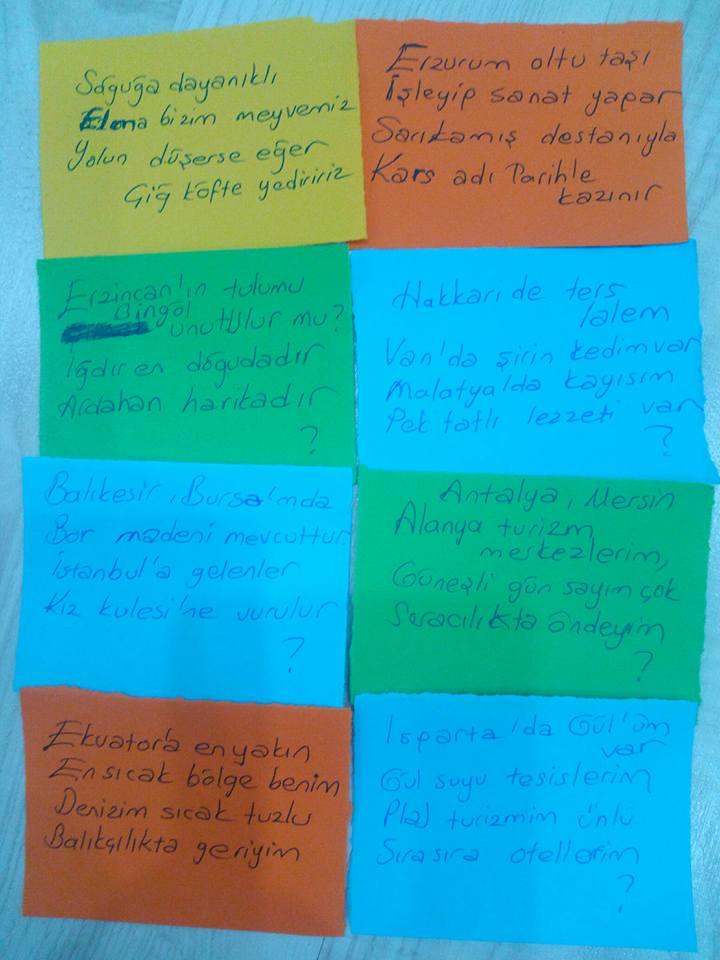 Soğuğa dayanıklı
Elma bizim meyvemiz
Yolun düşerse eğer
Çiğ köfte yediririz
Erzurum oltu taşı
İşleyip sanat yapar
Sarıkamış destanıyla
Kars adı Tarihle
kazınır
Erzincan'ın tulumu
Bingöl
unutulur mu?
Iğdır en doğudadır
Ardahan harikadır
?
Hakkari de ters
lalem
Van'da şirin kedim var
Malatya'da kayısım
Pek tatlı lezzeti var
?
Balıkesir, Bursa'mda
Bor madeni mevcuttur.
İstanbul'a gelenler
Kız kulesi'ne vurulur
?
Antalya, Mersin
Alanya turizm
merkezlerim,
Güneşli gün sayım çok
Seracılıkta öndeyim
?
Ekvator'a en yakın
En sıcak bölge benim
Denizim sıcak tuzlu
Balıkçılıkta geriyim
Isparta'da Gül'üm
var
Gül suyu tesislerim
Plaj turizmim ünlü
Sıra sıra otellerim
?